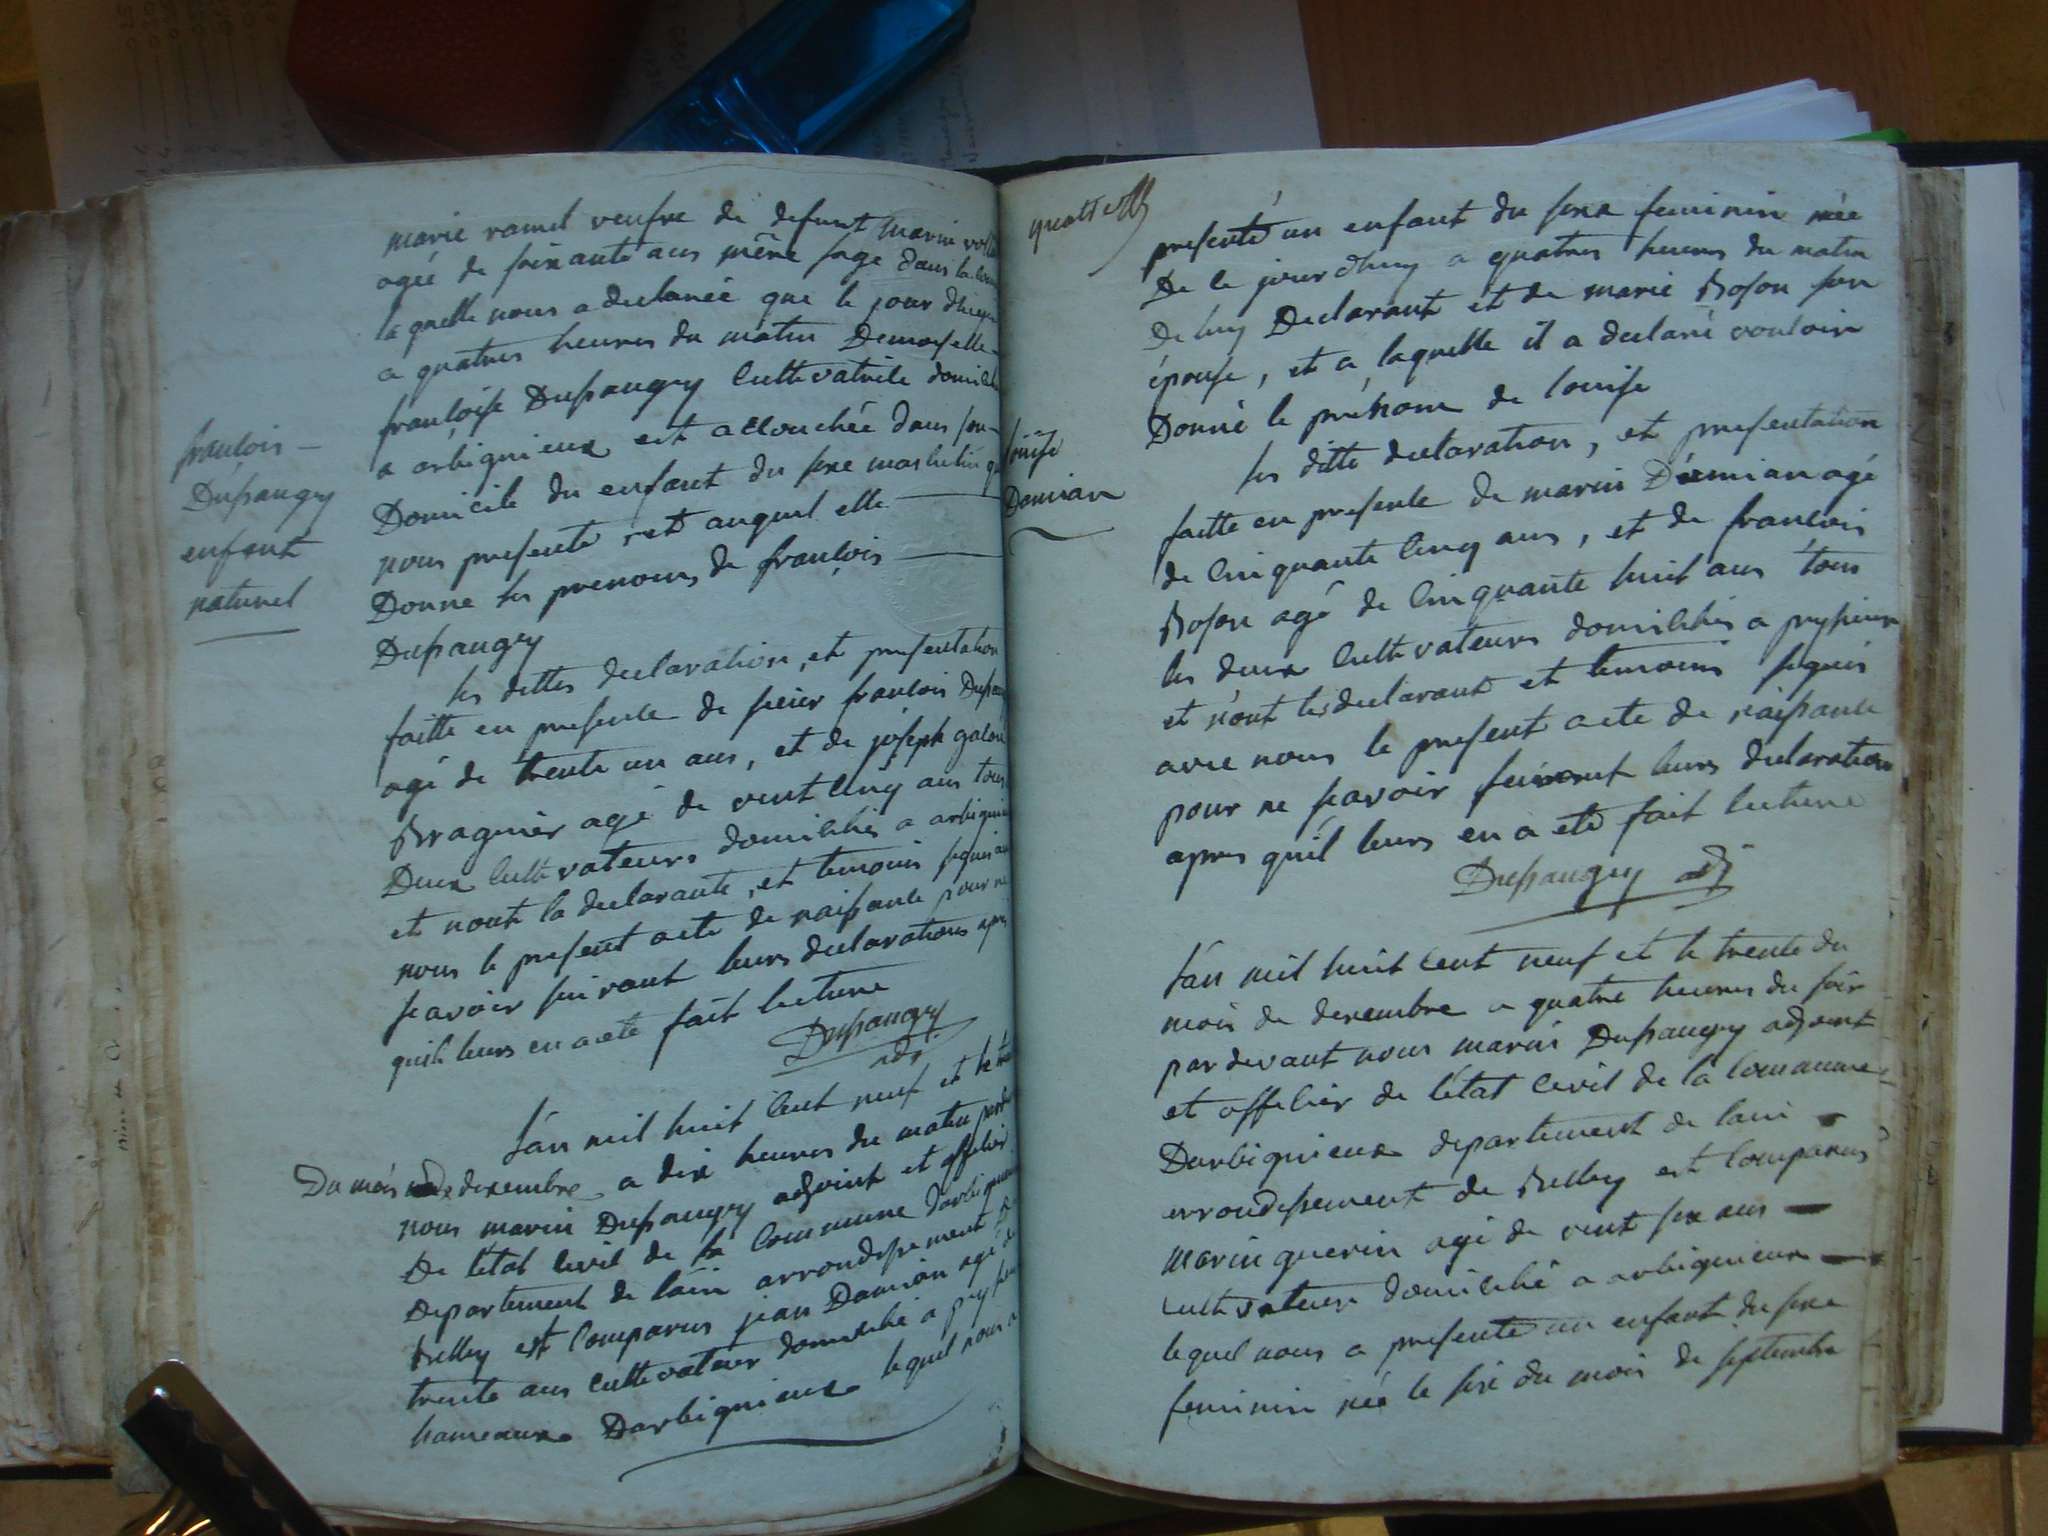 françois
Dupaugey
enfant
naturel
marie ramel veufve de defunt marin
agée de soixante ans mère sage dans la
laquelle nous a declarée que le jour d'huy
a quatres heures du matin Demoyselle
françoise Dussaugey Cultivatrice domiciliée
a arbignieux est accouchée dans son
Domicile du enfant du sexe masculin
nous presente, et auquel elle
Donne les prenoms de françois
Dussaugey
les dittes declaration, et presentation
faitte en presence de sieur francois
agé de trente un ans, et de joseph
Bragnier agé de vent cinq ans tous
Deux Cultivateurs domiciliés a arbignieux
et n'ont la declarante, et temoins signés
nous le present acte de naissance pour ne
scavoir suivant leurs declarations après
qu'ils leurs en a eté fait lecture
Dussaugey
adj.
L'an mil huit Cent neuf et le
Du mois de decembre a dix heures du matin
nous marin Dussaugey adjoint et officier
De l'état Civil de la Commune Darbignieux
Departement de lain arrondissement de
Belley est Comparus jean Damian agé de
trente ans cultivateur domicilié a
hameaux Darbignieux lequel nous a
presenté un enfant du sexe feminin née
De le jour d'huy a quatres heures du matin
De luy Declarant et de marie Boson son
épouse, et a laquelle il a declaré vouloir
Donné le prénom de louise
louise
Damian
les ditte declaration, et presentation
faitte en presence de marin Damian agé
de Cinquante Cinq ans, et de francois
Boson agé de Cinquante huit ans tous
les deux Cultivateurs domiciliés a
et n'ont les declarant et temoins signés
avec nous le present acte de naissance
pour ne scavoir suivant leurs declaration
apres qu'il leurs en a eté fait lecture
Dussaugey adj
L'an mil huit Cent neuf et le trente du
mois de decembre a quatre heures du soir
pardevant nous marin Dussaugey adjoint
et officier de l'état Civil de la Commune
Darbignieux departement de lain
arrondissement de Belley est Comparus
marin guerin agé de vent six ans
cultivateur domicilié a arbignieux
lequel nous a presenté un enfant du sexe
feminin née le six du mois de septembre